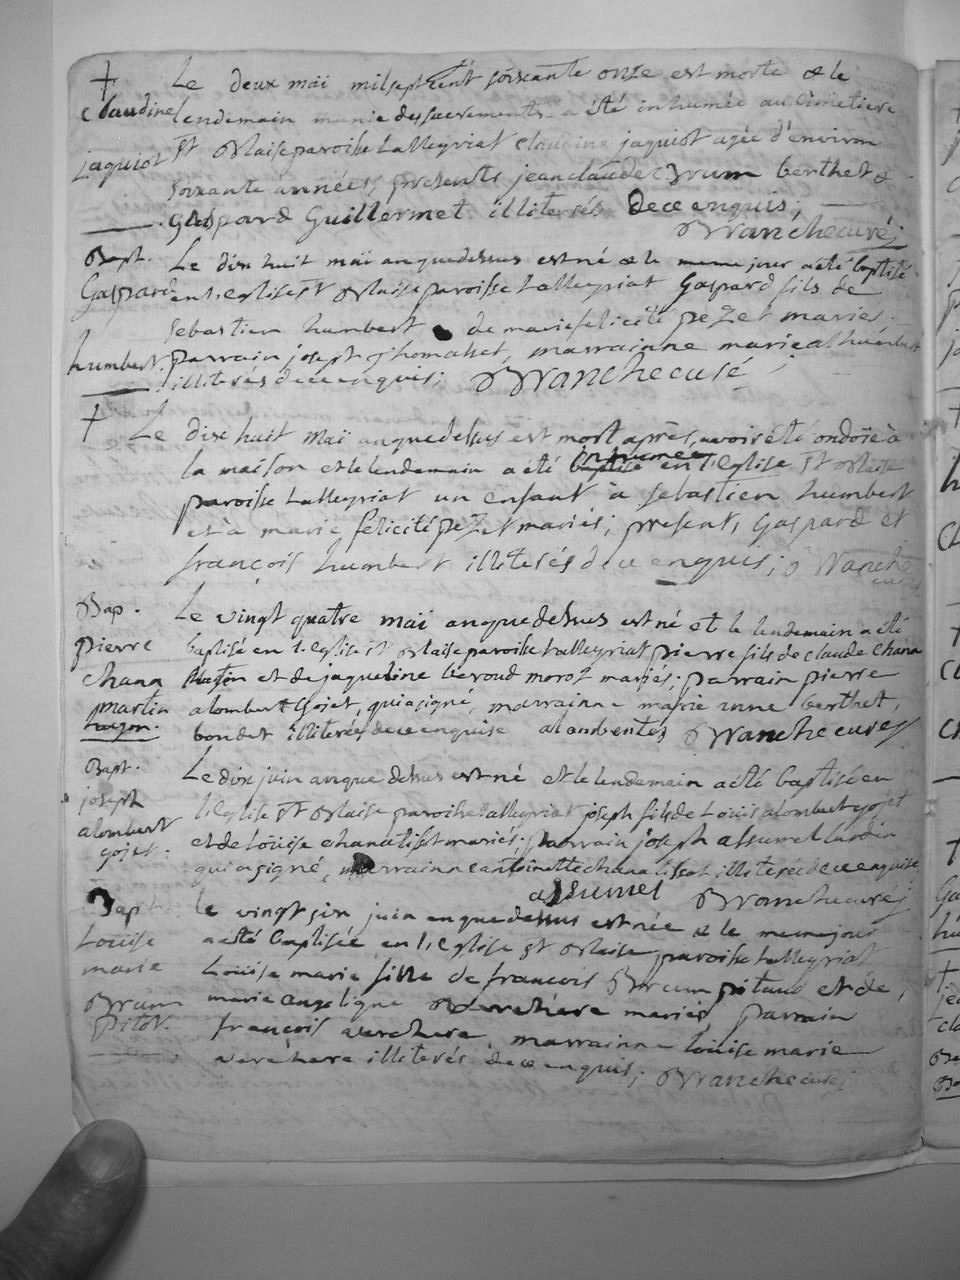 Le deux maï mil sept cent soixante onze est morte & le
Claudine lendemain munie des sacrements a été inhumée au cimetiere
jaquiot St Blaise paroisse Lalleyriat Claudine jaquiot agée d'environ
soixante années, presents jean claude Brum berthet &
Gaspard Guillermet illiterés de ce enquis;
Branche curé;
Bapt. Le dix huit maï an que dessus est né & le meme jour a été baptisé
Gaspard en l'eglise St Blaise paroisse Lalleyriat Gaspard fils de
Sebastien humbert & de marie felicité pezet mariés.
humbert. parrain joseph thomasset, marrainne marie al humbert
illiterés de ce enquis; Branche curé
Le dix huit maï an que dessus est mort après, avoir été ondoïe à
la maison et le lendemain a été inhumée en l'eglise St Blaise
paroisse Lalleyriat un enfant à sebastien humbert
et à marie felicité pezet mariés; presents, Gaspard et
françois humbert illiterés de ce enquis; Branche
curé
Bap. Le vingt quatre maï an que dessus est né et le lendemain a été
pierre baptisé en l'eglise St Blaise paroisse Lalleyriat pierre fils de claude chana
chana martin et de jaqueline beroud moroz mariés; parrain pierre
martin alombert Gojet, qui a signé, marrainne marie anne berthet,
bondet illiterées de ce enquise alombert Branche curé
Bapt. Le dix juin an que dessus est né et le lendemain a été baptisé en
joseph l'eglise St Blaise paroisse Lalleyriat joseph fils de Loüis alombert gojet
alombert et de Loüise chanatisot mariés; parrain joseph assumel lurdin
gojet. qui a signé, marrainne antoinette chanatisot illiterée de ce enquise
assumel Branche curé
Bapt. Le vingt six juin an que dessus est née & le meme jour
Loüise a été baptisée en l'eglise St Blaise paroisse Lalleyriat
marie Loüise marie fille de françois Brum pitaud et de
Brum marie angeligne Verchere mariés, parrain
pitot. françois verchere, marrainne Loüise marie
verchere illiterés de ce enquis; Branche curé